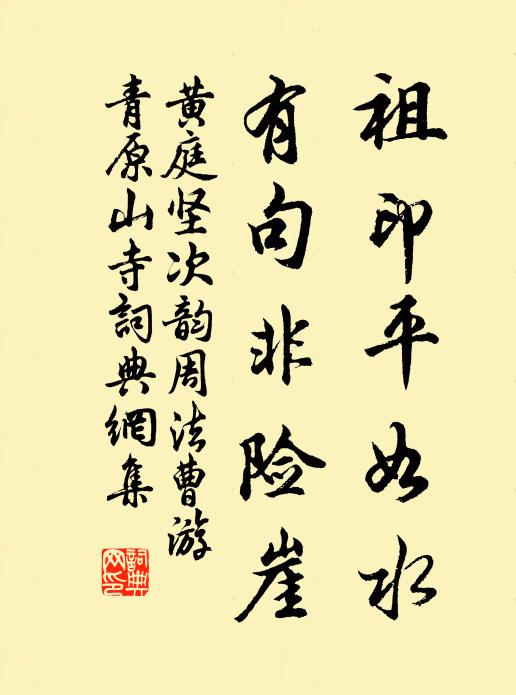 祖印平如水
有句非险崖
黄庭坚次韵周法曹游
青原山寺詞典網集
詞典
网印